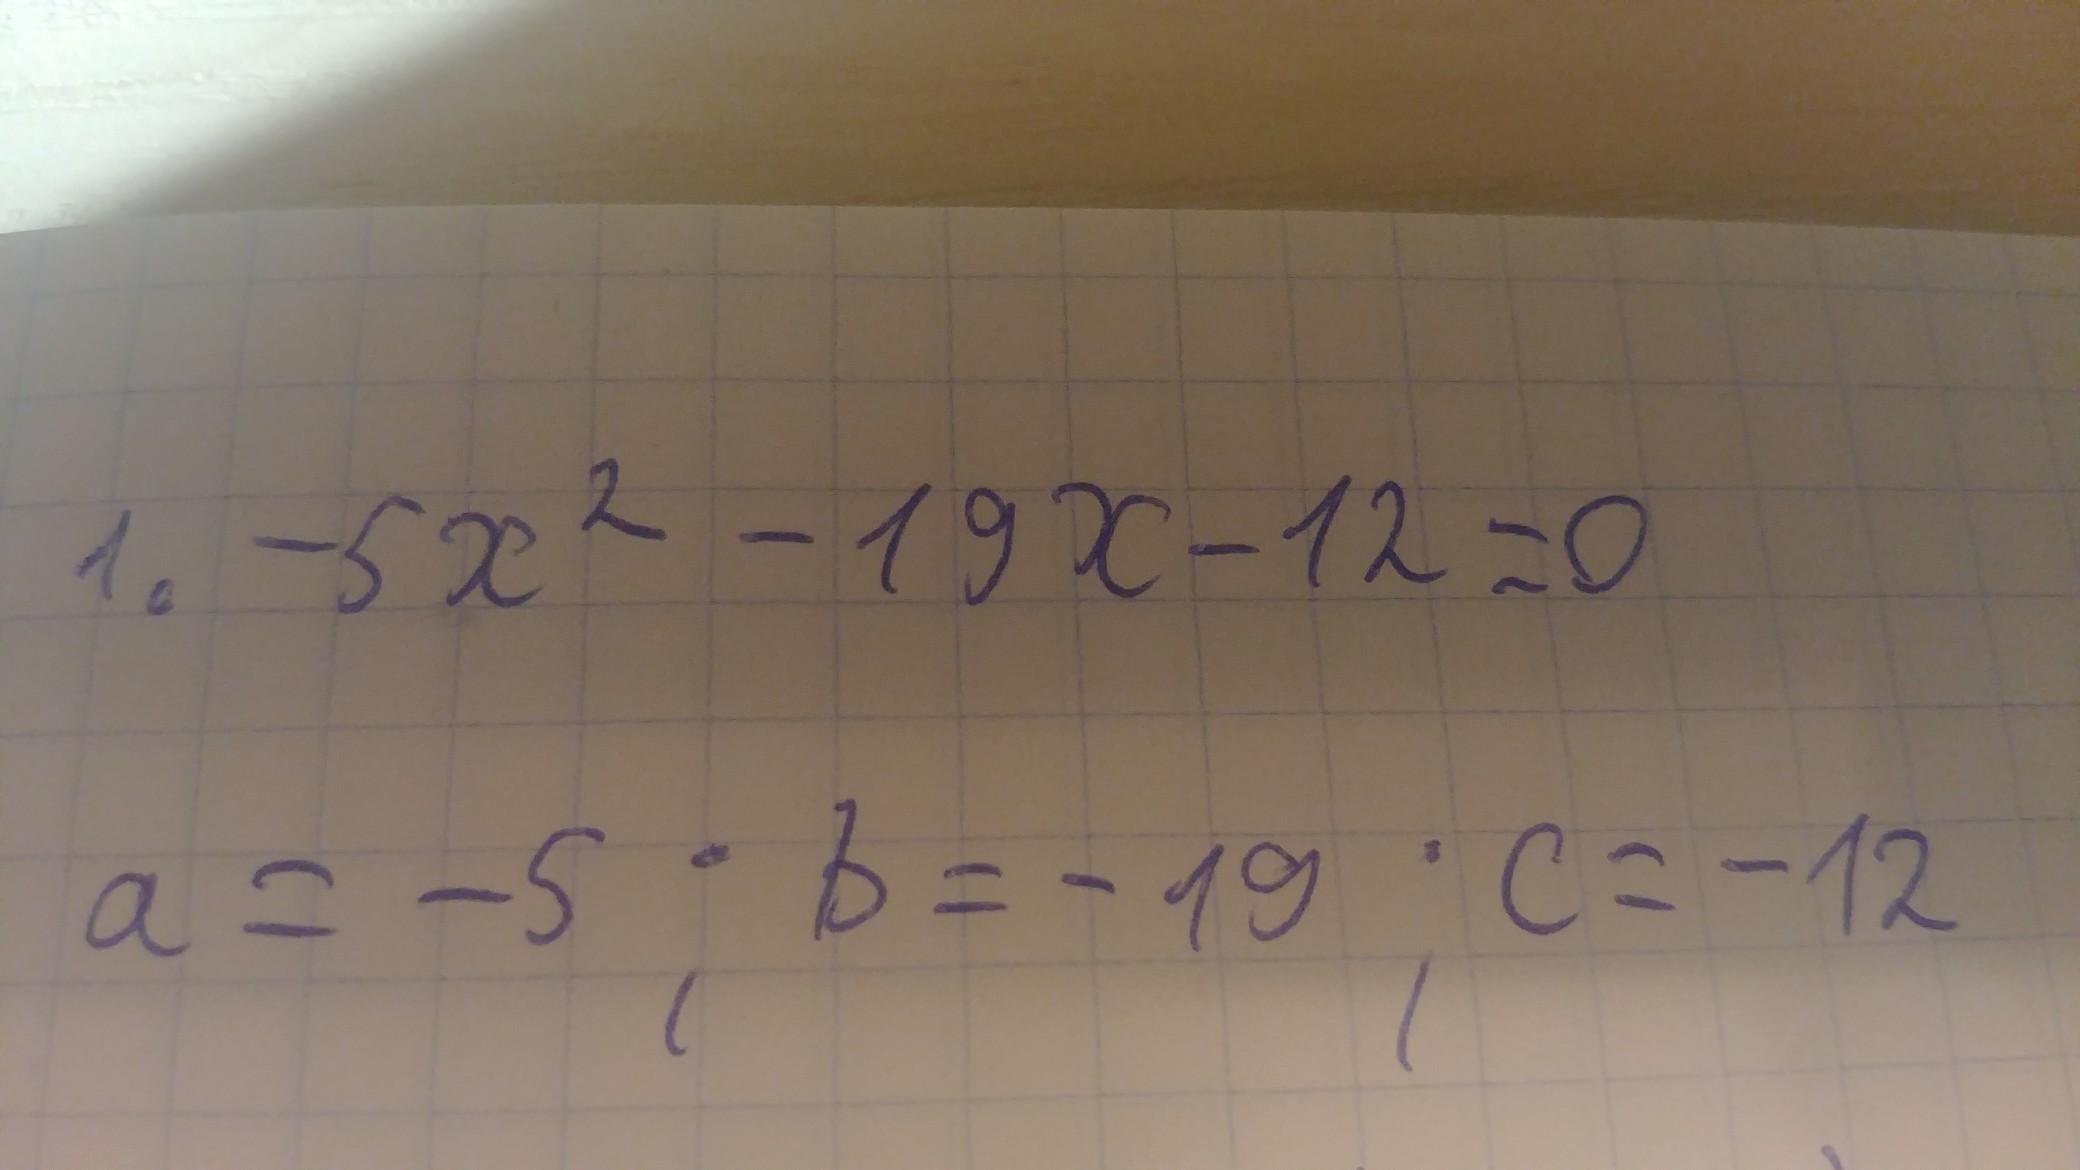 1. -5x² - 19x - 12 = 0
a = -5 ; b = -19 ; c = -12